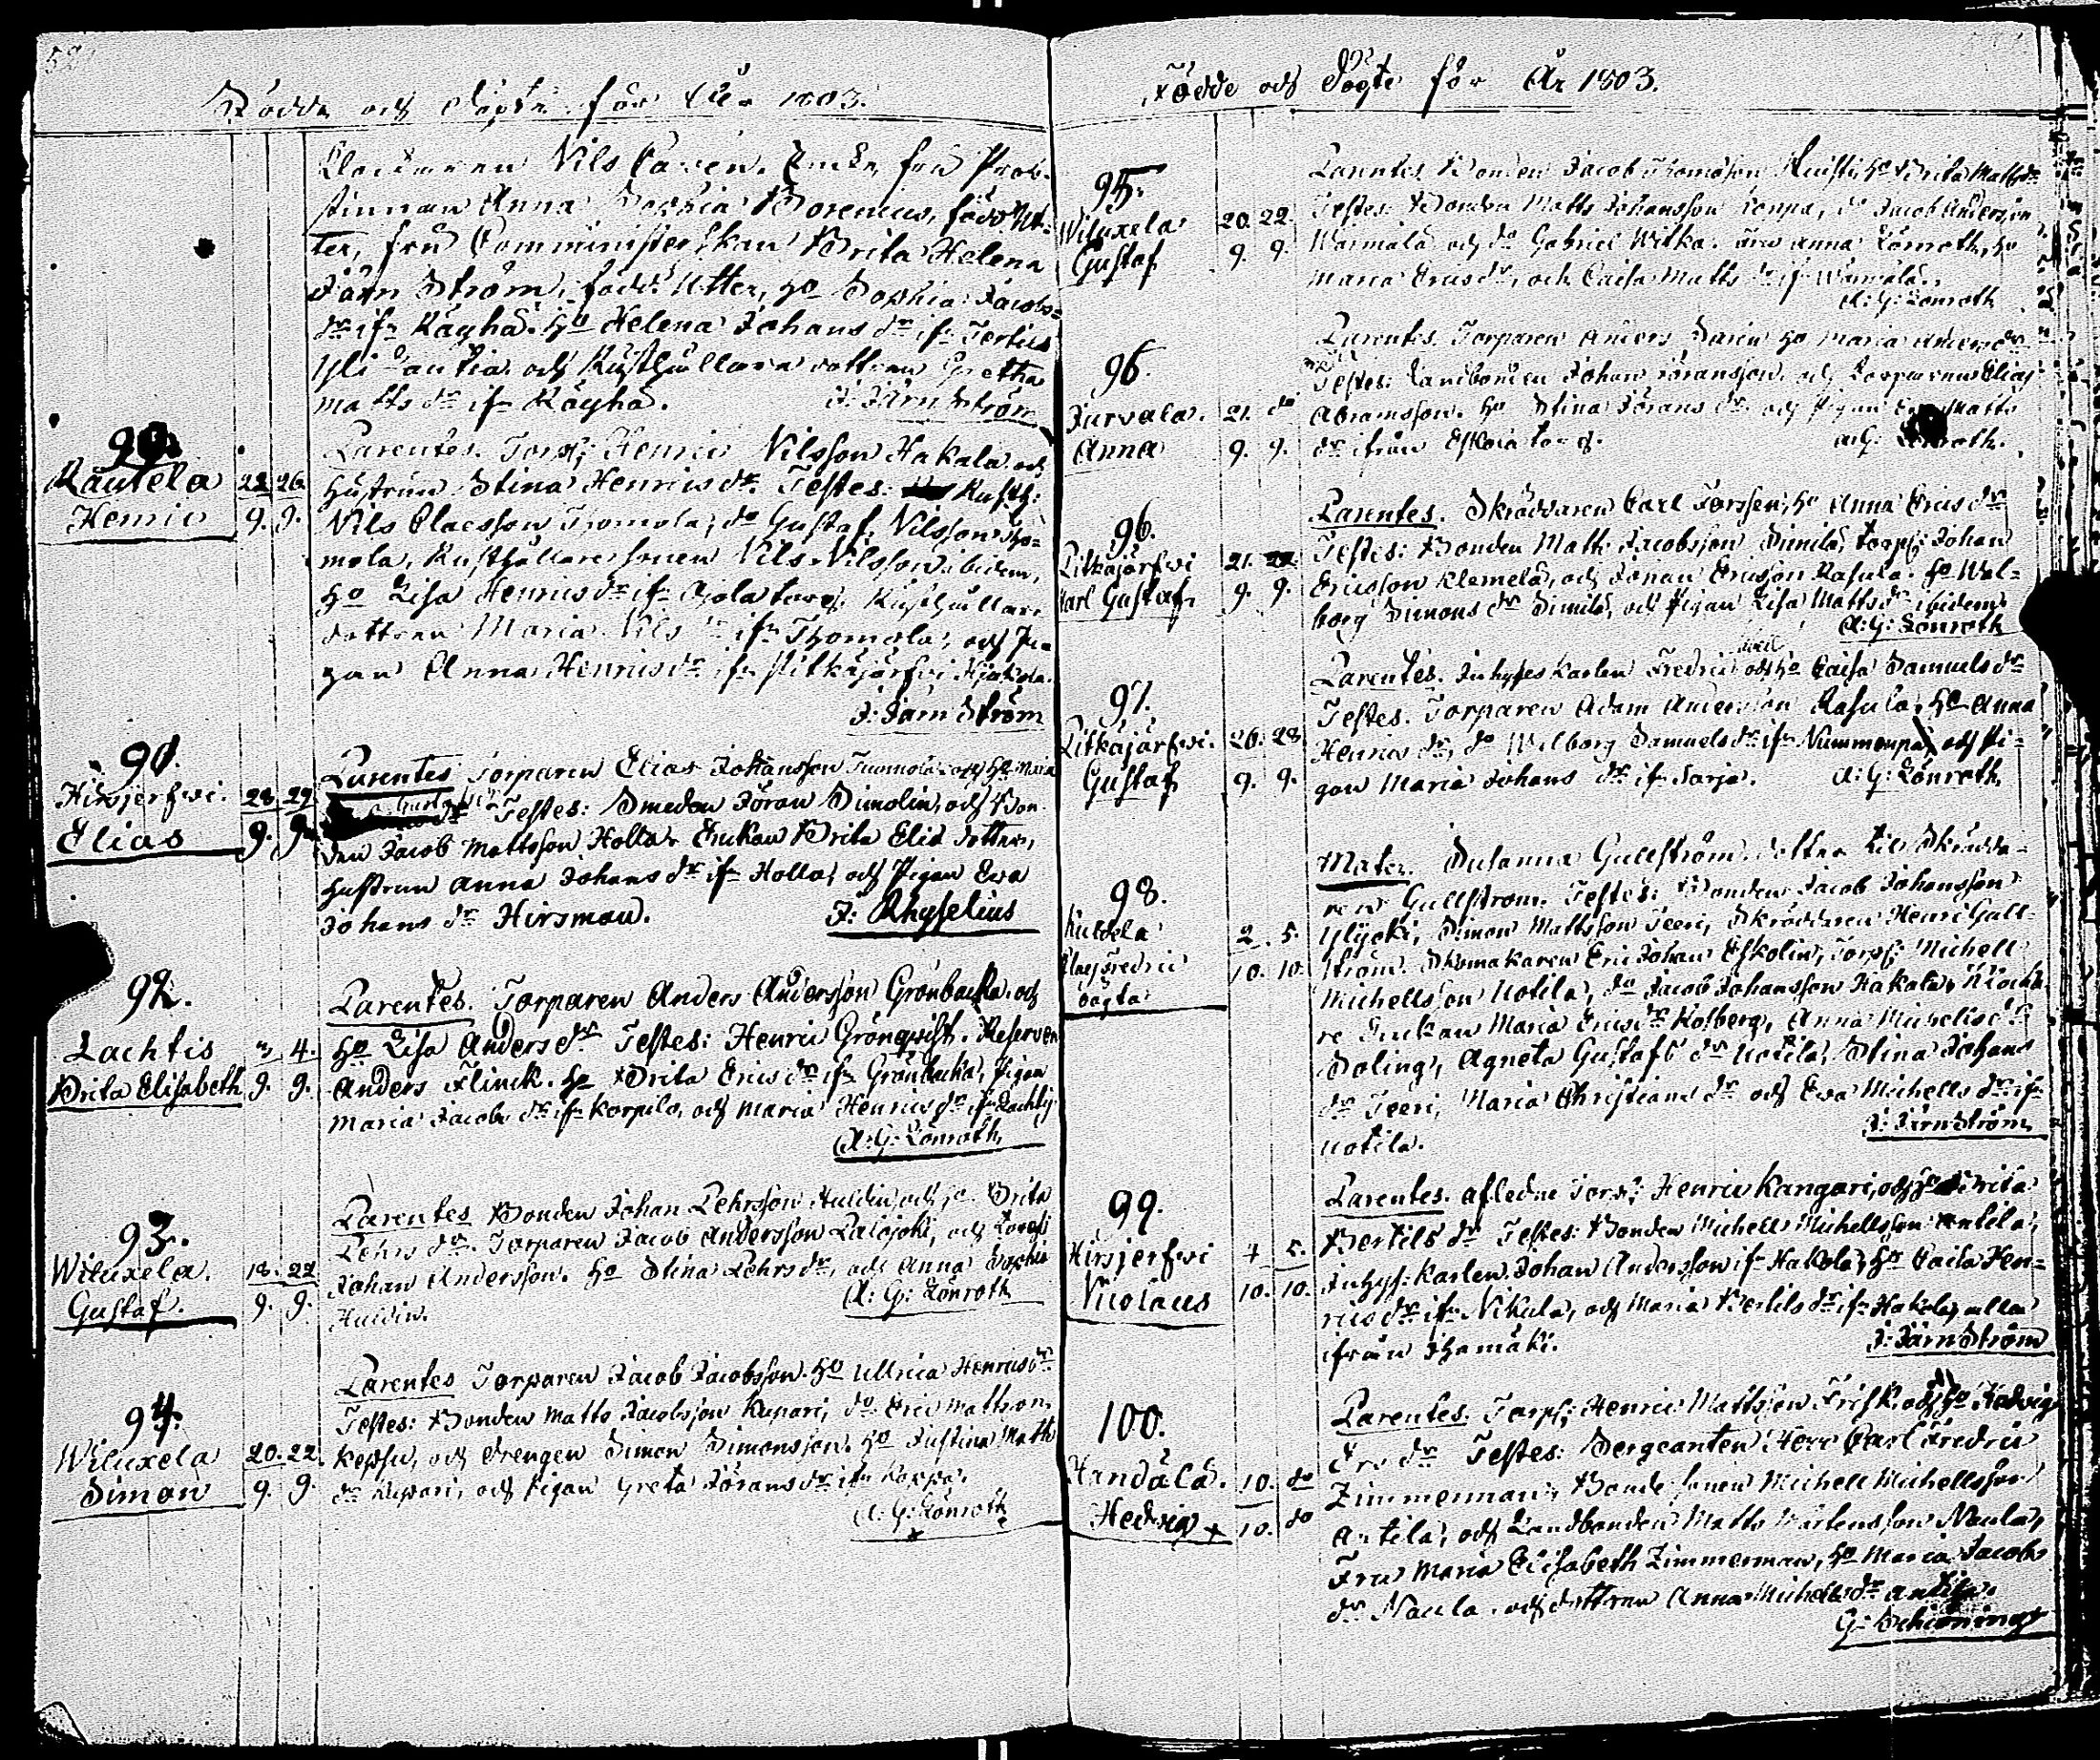 Födde och Döpte för År 1803.
Nils Enka, fru Prob-
stinnan Anna Sophia Borenius, född Ut-
ter, fru Comministerskan Brita Helena
Järn Ström, född Utter, Ho Sophia Jacobs-
dr ifr Räyhä. Ho Helena Johans dr ifr Tertius
och Rusthållare dottren Gretha
Matts dr ifr Räyhä. J: Järnström
90.
Rautela 22. 26.
Henric 9. 9.
Parentes. Torp: Henric Nilsson Hakala och
hustrun Stina Henricsdr. Testes: Rusth:
Nils Claesson Thomola, do Gustaf Nilsson Tho-
mola, Rusthållaresonen Nils Nilsson ibidem,
Ho Lisa Henricsdr ifr torp. Rusthållare
dottren Maria Nils dr ifr Thomola, och Pi-
gan Anna Henricsdr ifr Pitkäjärfwi
J: Järnström
91.
Hirsjerfwi. 28. 29.
Elias 9. 9.
Parentes Torparen Elias Johansson Tuomola och Ho Maria
dr Testes: Smeden Jöran Simolin, och Bon-
den Jacob Mattsson Holla. Enkan Brita Eliæ dotter,
hustrun Anna Johans dr ifr Holla, och Pigan Ewa
Johans dr Hirsmau. J: Rhyselius
92.
Lachtis 3. 4.
Brita Elisabeth 9. 9.
Parentes. Torparen Anders Andersson Grönbacka och
Ho Lisa Anders dr Testes: Henric Grönqwist. Reserven
Anders Flinck. Ho Brita Erics dr ifr Grönbacka, Pigan
Maria Jacobs dr ifr Korpila, och Maria Henrics dr ifr Lachtis
A: G: Lönroth
93.
Wiluxela. 18. 22.
Gustaf. 9. 9.
Parentes Bonden Johan Pehrsson Huldin och Ho Brita
Pehrs dr. Torparen Jacob Andersson Palojoki, och
Johan Andersson. Ho Stina Pehrs dr, och Anna Sophia
Huldin. A: G: Lönroth
94.
Wiluxela 20. 22.
Simon 9. 9.
Parentes Torparen Jacob Jacobsson. Ho Ullrica Henricsdr
Testes: Bonden Matts Jacobsson Kupari, do Eric Mattsson
Kepsu, och drengen Simon Simonsson. Ho Justina Matts
dr Kupari, och Pigan Greta Jörans dr ifr
A: G: Lönroth
Födde och Döpte för År 1803.
95.
Wiluxela 20. 22.
Gustaf 9. 9.
Parentes. Bonden Jacob Thomasson Ho Brita Mattsdr
Testes: Bonden Matts Johansson Loppa, do Jacob Andersson
Warmala och do Gabriel Wilka. Fru Anna Lönroth, Ho
Maria Ericsdr, och Caisa Matts dr ifr Warmala.
A: G: Lönroth
96.
Jurvala. 21. do
Anna 9. 9.
Parentes. Torparen Anders Ho Maria Andersdr
Testes: Landbonden Johan Jöransson, och Torparen Elias
Abramsson. Ho Stina Jörans dr och Pigan Matts
dr ifrån Eskola torp. A: G: Lönroth.
96.
Pitkäjärfwi 21. 22.
Karl Gustaf 9. 9.
Parentes. Skräddaren Carl Forssen, Ho Anna Ericsdr
Testes: Bonden Matts Jacobsson Simila, torp: Johan
Ericsson Klemelä, och Johan Ericsson Rasula. Ho Wal-
borg Simons dr Simila, och Pigan Lisa Mattsdr ibidem
A: G: Lönroth
97.
Pitkäjärfwi. 26. 28
Gustaf 9. 9.
Parentes. Inhyses Karlen Fredric och Ho Caisa Samuelsdr
Testes. Torparen Adam Andersson Rasula, Ho Anna
Henrics dr, do Walborg Samuelsdr ifr Nummenpä, och Pi-
gan Maria Johans dr ifr Sarja. A: G: Lönroth
98.
2. 5.
Claes Fredric 10. 10.
oägta
Mater. Susanna Gullström. dotter til Skrädda-
ren Gullström. Testes: Bonden Jacob Johansson
Ylijoki, Simon Mattsson Teeri, Skräddaren Henric Gull-
ström. Skomakaren Eric Johan Eskolin, Torp: Michell
Michellsson Uotila, do Jacob Johansson Hakala, Klocka-
re Enckan Maria Ericsdr Kolberg, Anna Michelsdr
Soling, Agneta Gustafs dr Uotila, Stina Johans
dr Teeri, Maria Christians dr och Ewa Michells dr ifr
Uotila. J: Järnström
99.
Hirsjerfwi 4 5.
Nicolaus 10. 10.
Parentes. afledne Torp: Henric Kangari, och Ho Brita
Bertils dr Testes: Bonden Michell Michellsson Antila,
Inhys: Karlen Johan Andersson ifr Hakala, Ho Caisa Hen-
rics dr ifr Nikula, och Maria Bertils dr ifr Hakala, alla
ifrån Ihamäki. J: Järnström
100.
Handälä. 10. do
Hedvig + 10. do
Parentes. Torp: Henric Mattsson Frisk och Ho Hedvig
dr Testes: Sergeanten Herr Carl Fredric
Zimmerman, Bonde sonen Michell Michellsson
Antila, och Landbonden Matts Mårtensson Naula,
Fru Maria Elisabeth Zimmerman, Ho Maria Jacobs
dr Naula, och dottren Anna Michells dr Antila.
G: Schironing